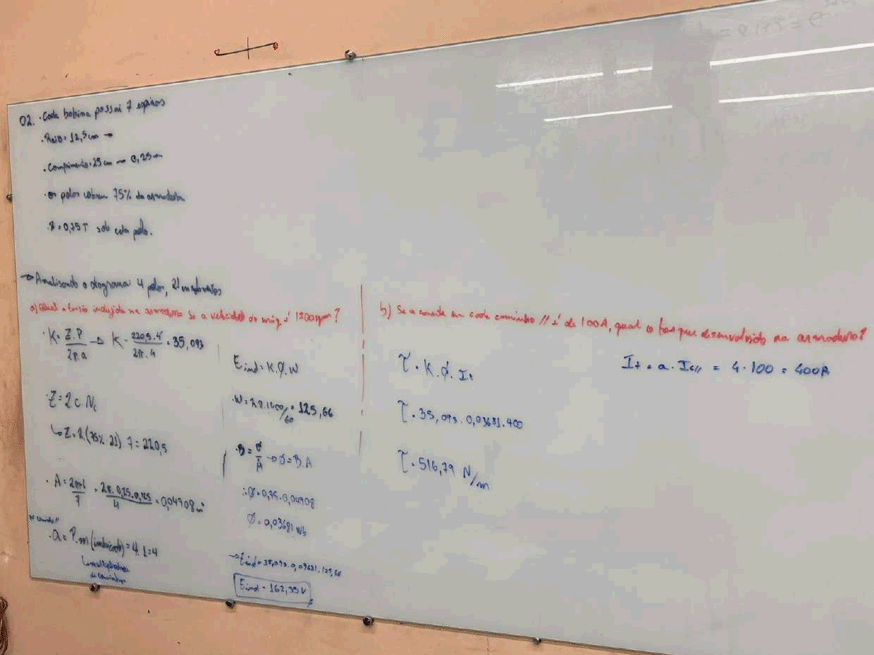 02. • Cada bobina possui 7 espiras
• Raio = 12,5 cm →
• Comprimento = 25 cm → 0,25 m
• os polos cobrem 75% da armadura
• B = 0,75 T sob cada polo.
→ Analisando o diagrama: 4 polos, 21
a) Qual a tensão induzida na armadura se a velocidade do eixo é 1200 rpm?
• K = Z.P/2π.a → K = 220,5.4/2π.4 = 35,093
Z = 2 C Nc
↳ Z = 2 (75% 21) 7 = 220,5
• A = 2πrl/P = 2π.0,25.0,125/4 = 0,04908 m²
a = P.m (imbricado) = 4.1 = 4
Eind = K.Ø.W
W = 2π.1200/60 = 125,66
B = Ø/A → Ø = B.A
∴ Ø = 0,75.0,04908
Ø = 0,03681 Wb
→ Eind = 35,093.0,03681.125,66
Eind = 162,33 V
b) Se a corrente em cada caminho // é de 100A, qual o torque desenvolvido na armadura?
τ = K.Ø.It
τ = 35,093.0,03681.400
τ = 516,79 N/m
It = a.I = 4.100 = 400A